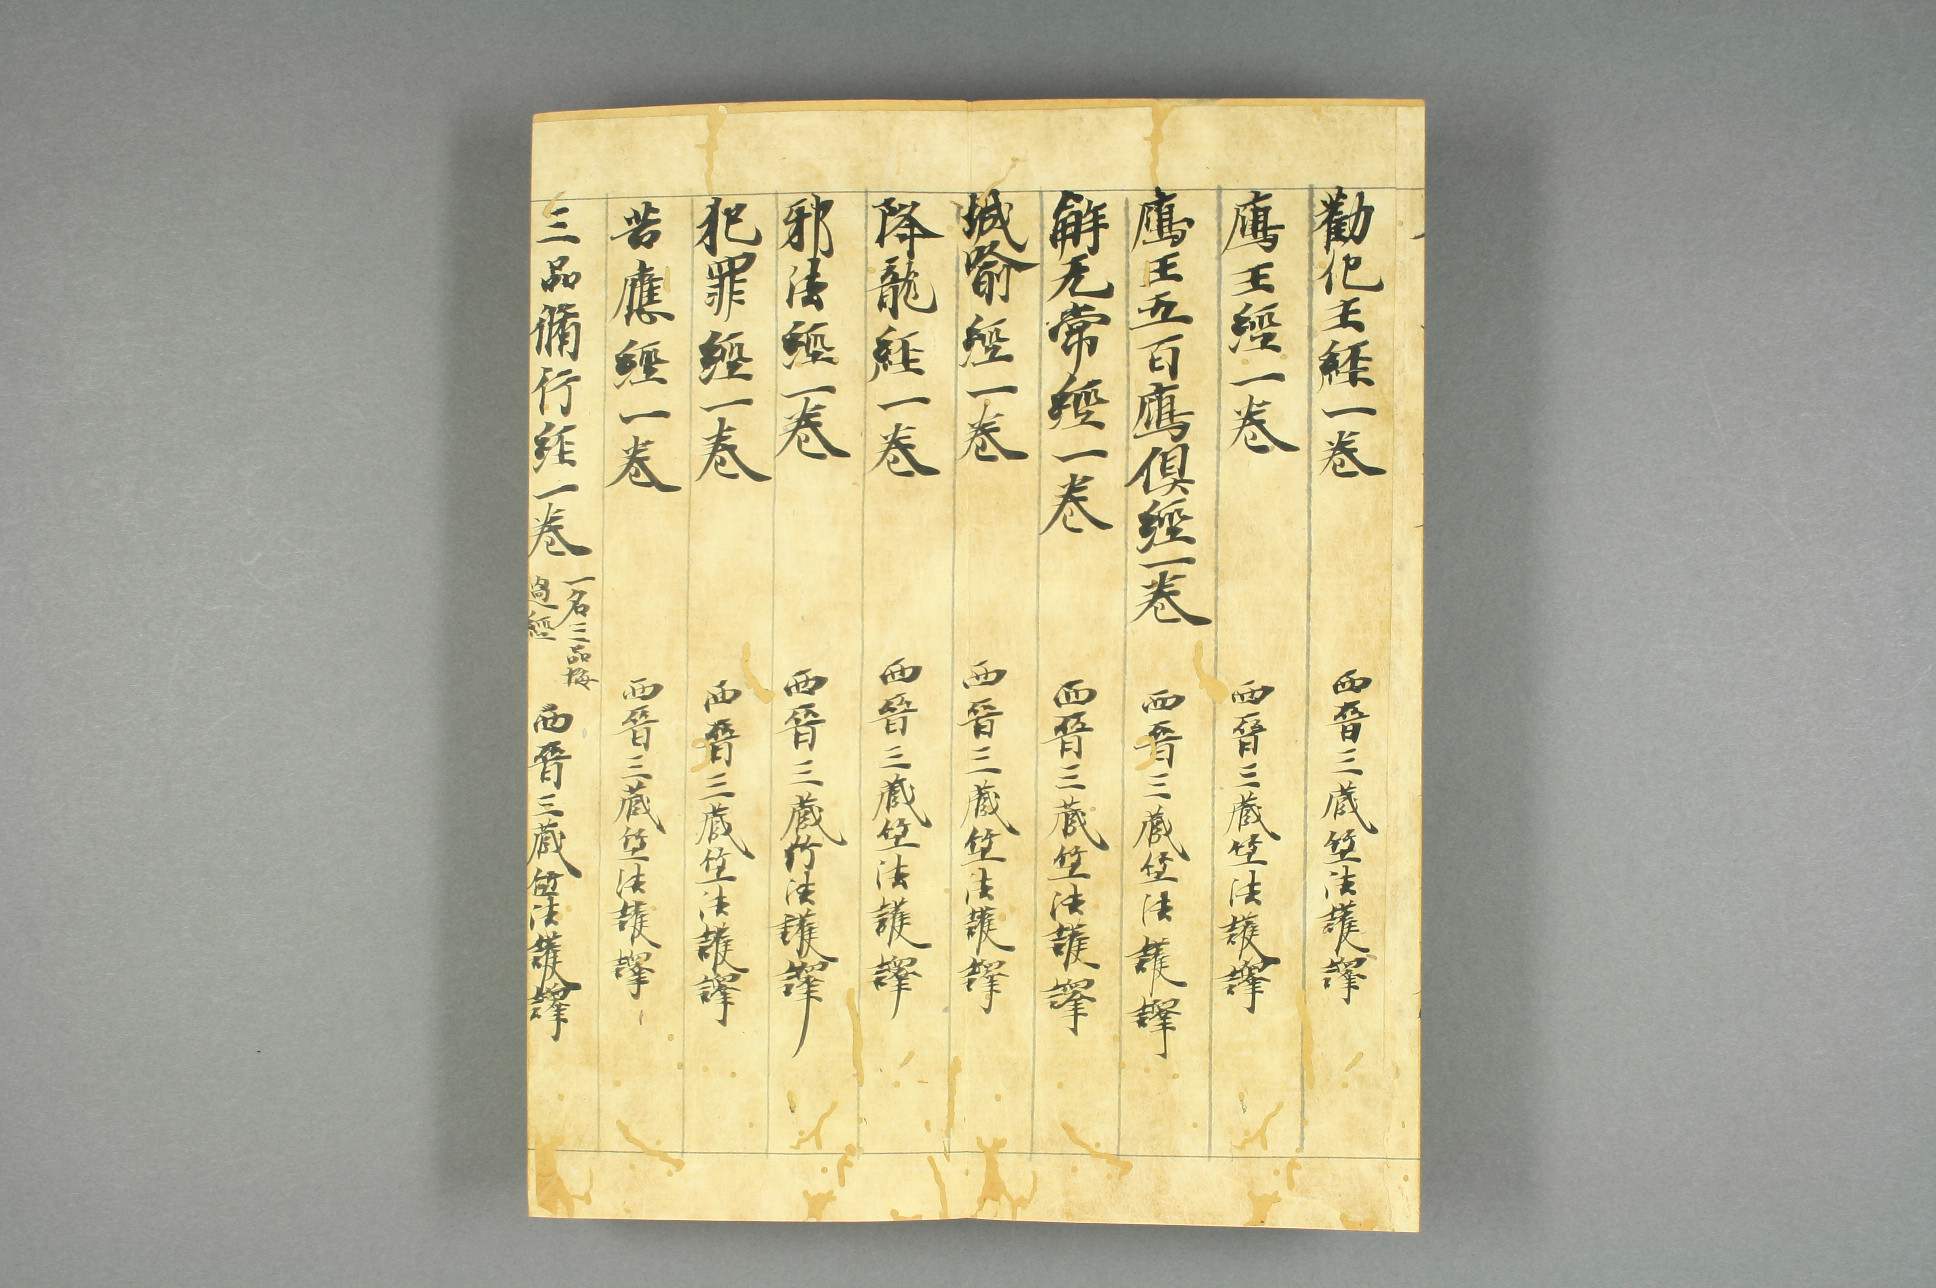 勸化王經一卷 西晉三藏竺法護譯
鴈王經一卷 西晉三藏竺法護譯
鴈王五百鴈俱經一卷 西晉三藏竺法護譯
解无常經一卷 西晉三藏竺法護譯
城喻經一卷 西晉三藏竺法護譯
降龍經一卷 西晉三藏竺法護譯
邪法經一卷 西晉三藏竹法護譯
犯罪經一卷 西晉三藏竺法護譯
苦應經一卷 西晉三藏竺法護譯
三品脩行經一卷 一名三品悔過經 西晉三藏竺法護譯